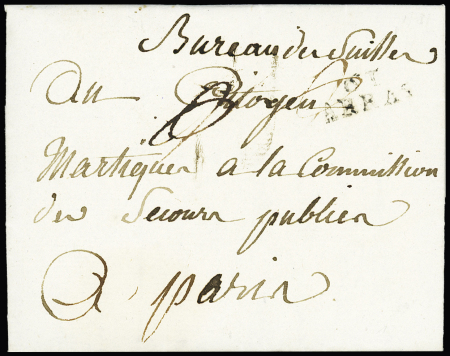 Bureau des Suittes
Au Citoyen
Martiques a la Commission
des Secours publics
A paris
61
ARRAS